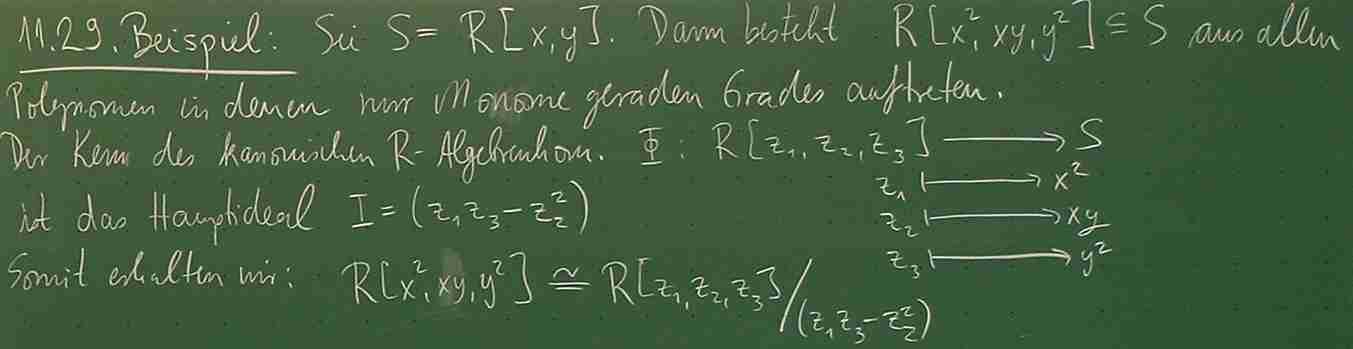 11.29. Beispiel: Sei S = R[x,y]. Dann besteht R[x², xy, y²] ⊆ S aus allen
Polynomen in denen nur Monome geraden Grades auftreten.
Der Kern des kanonischen R-Algebrenhom. Φ : R[z₁, z₂, z₃] ⟶ S
z₁ ⟼ x²
ist das Hauptideal I = (z₁z₃ − z₂²)
z₂ ⟼ xy
z₃ ⟼ y²
Somit erhalten wir: R[x², xy, y²] ≅ R[z₁, z₂, z₃]/(z₁z₃ − z₂²)